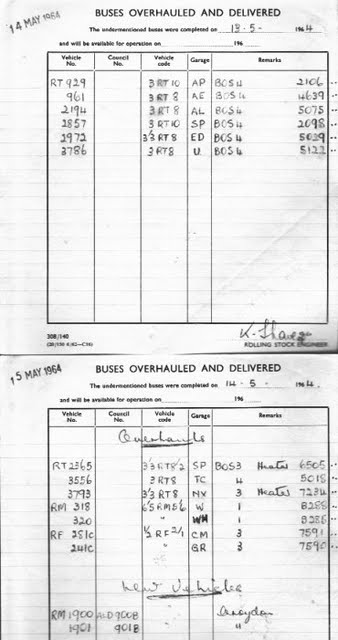 14 MAY 1964
BUSES OVERHAULED AND DELIVERED
The undermentioned buses were completed on 13 - 5 - 1964
and will be available for operation on 196
Vehicle No. Council No. Vehicle code Garage Remarks
RT 929 3 RT 10 AP BOS 4 2106
961 3 RT 8 AE BOS 4 4639
2194 3 RT 8 AL BOS 4 5075
2857 3 RT 10 SP BOS 4 2098
2972 3/3 RT 8 ED BOS 4 5029
3786 3 RT 8 U BOS 4 5122
308/140
ROLLING STOCK ENGINEER
15 MAY 1964
BUSES OVERHAULED AND DELIVERED
The undermentioned buses were completed on 14 - 5 - 1964
and will be available for operation on 196
Vehicle No. Council No. Vehicle code Garage Remarks
Overhauls
RT 2365 3/3 RT 8/2 SP BOS 3 Heater 6505
3556 3 RT 8 TC 4 5018
3793 3/3 RT 8 NX 3 Heater 7234
RM 318 6/5 RM 5/6 W 1 8288
320 " WH 1 8286
RF 281C 1/2 RF 2/1 CM 3 7591
241C " GR 3 7590
New Vehicles
RM 1900 ALD 900B Croydon
1901 901B "